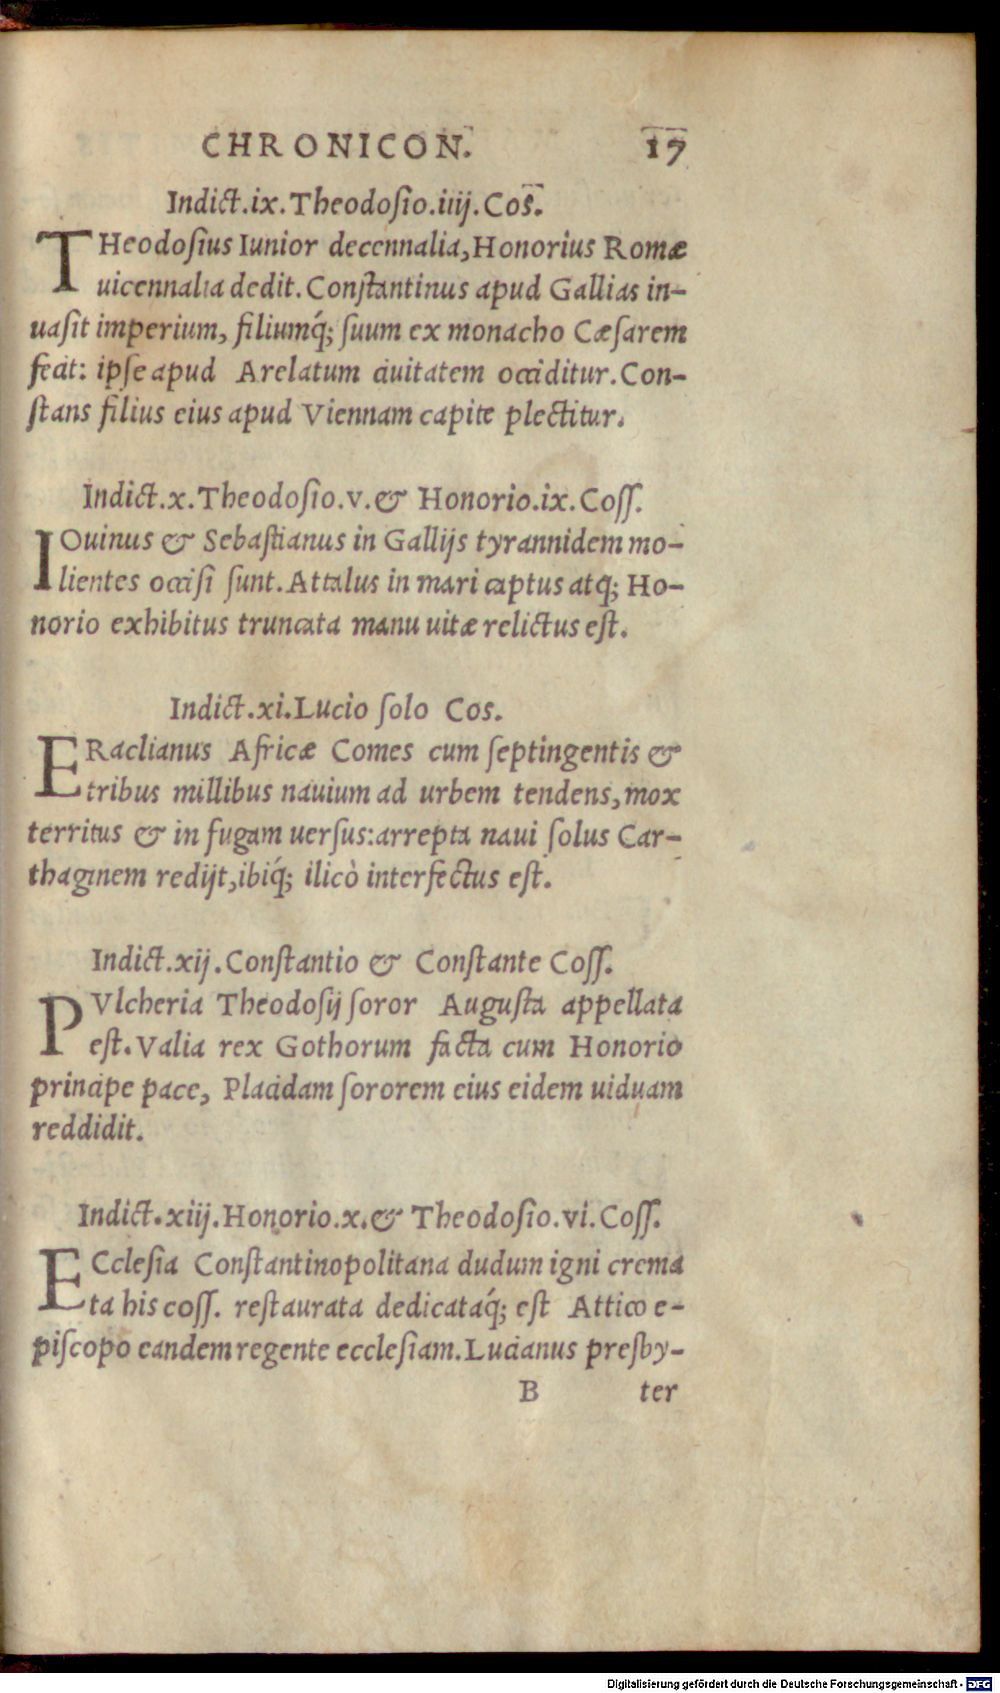 CHRONICON. 17
Indict.ix.Theodoſio.iiij.Cos.
THeodoſius Iunior decennalia,Honorius Romæ
uicennalia dedit.Conſtantinus apud Gallias in-
uaſit imperium, filiumq́; ſuum ex monacho Cæſarem
fecit: ipſe apud Arelatum ciuitatem occiditur.Con-
ſtans filius eius apud Viennam capite plectitur.
Indict.x.Theodoſio.v.& Honorio.ix.Coſſ.
IOuinus & Sebaſtianus in Gallijs tyrannidem mo-
lientes occiſi ſunt.Attalus in mari captus atq́; Ho-
norio exhibitus truncata manu uitæ relictus eſt.
Indict.xi.Lucio ſolo Cos.
ERaclianus Africæ Comes cum ſeptingentis &
tribus millibus nauium ad urbem tendens,mox
territus & in fugam uerſus:arrepta naui ſolus Car-
thaginem redijt,ibiq́; ilicò interfectus eſt.
Indict.xij.Conſtantio & Conſtante Coſſ.
PVlcheria Theodoſij ſoror Auguſta appellata
eſt.Valia rex Gothorum facta cum Honorio
principe pace, Placidam ſororem eius eidem uiduam
reddidit.
Indict.xiij.Honorio.x.& Theodoſio.vi.Coſſ.
ECcleſia Conſtantinopolitana dudum igni crema
ta his coſſ. reſtaurata dedicataq́; eſt Attico e-
piſcopo eandem regente eccleſiam.Lucianus preſby-
B ter
Digitalisierung gefördert durch die Deutsche Forschungsgemeinschaft - DFG